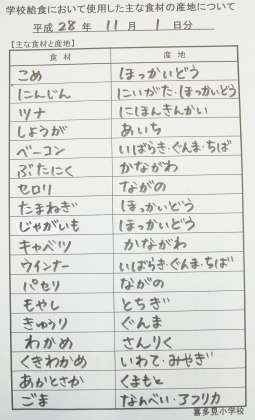 学校給食において使用した主な食材の産地について
平成 28 年 11 月 1 日分
【主な食材と産地】
食材 産地
こめ ほっかいどう
にんじん にいがた・ほっかいどう
ツナ にほんきんかい
しょうが あいち
ベーコン いばらき・ぐんま・ちば
ぶたにく かながわ
セロリ ながの
たまねぎ ほっかいどう
じゃがいも ほっかいどう
キャベツ かながわ
ウインナー いばらき・ぐんま・ちば
パセリ ながの
もやし とちぎ
きゅうり ぐんま
わかめ さんりく
くきわかめ いわて・みやぎ
あかとさか くまもと
ごま なんべい・アフリカ
喜多見小学校